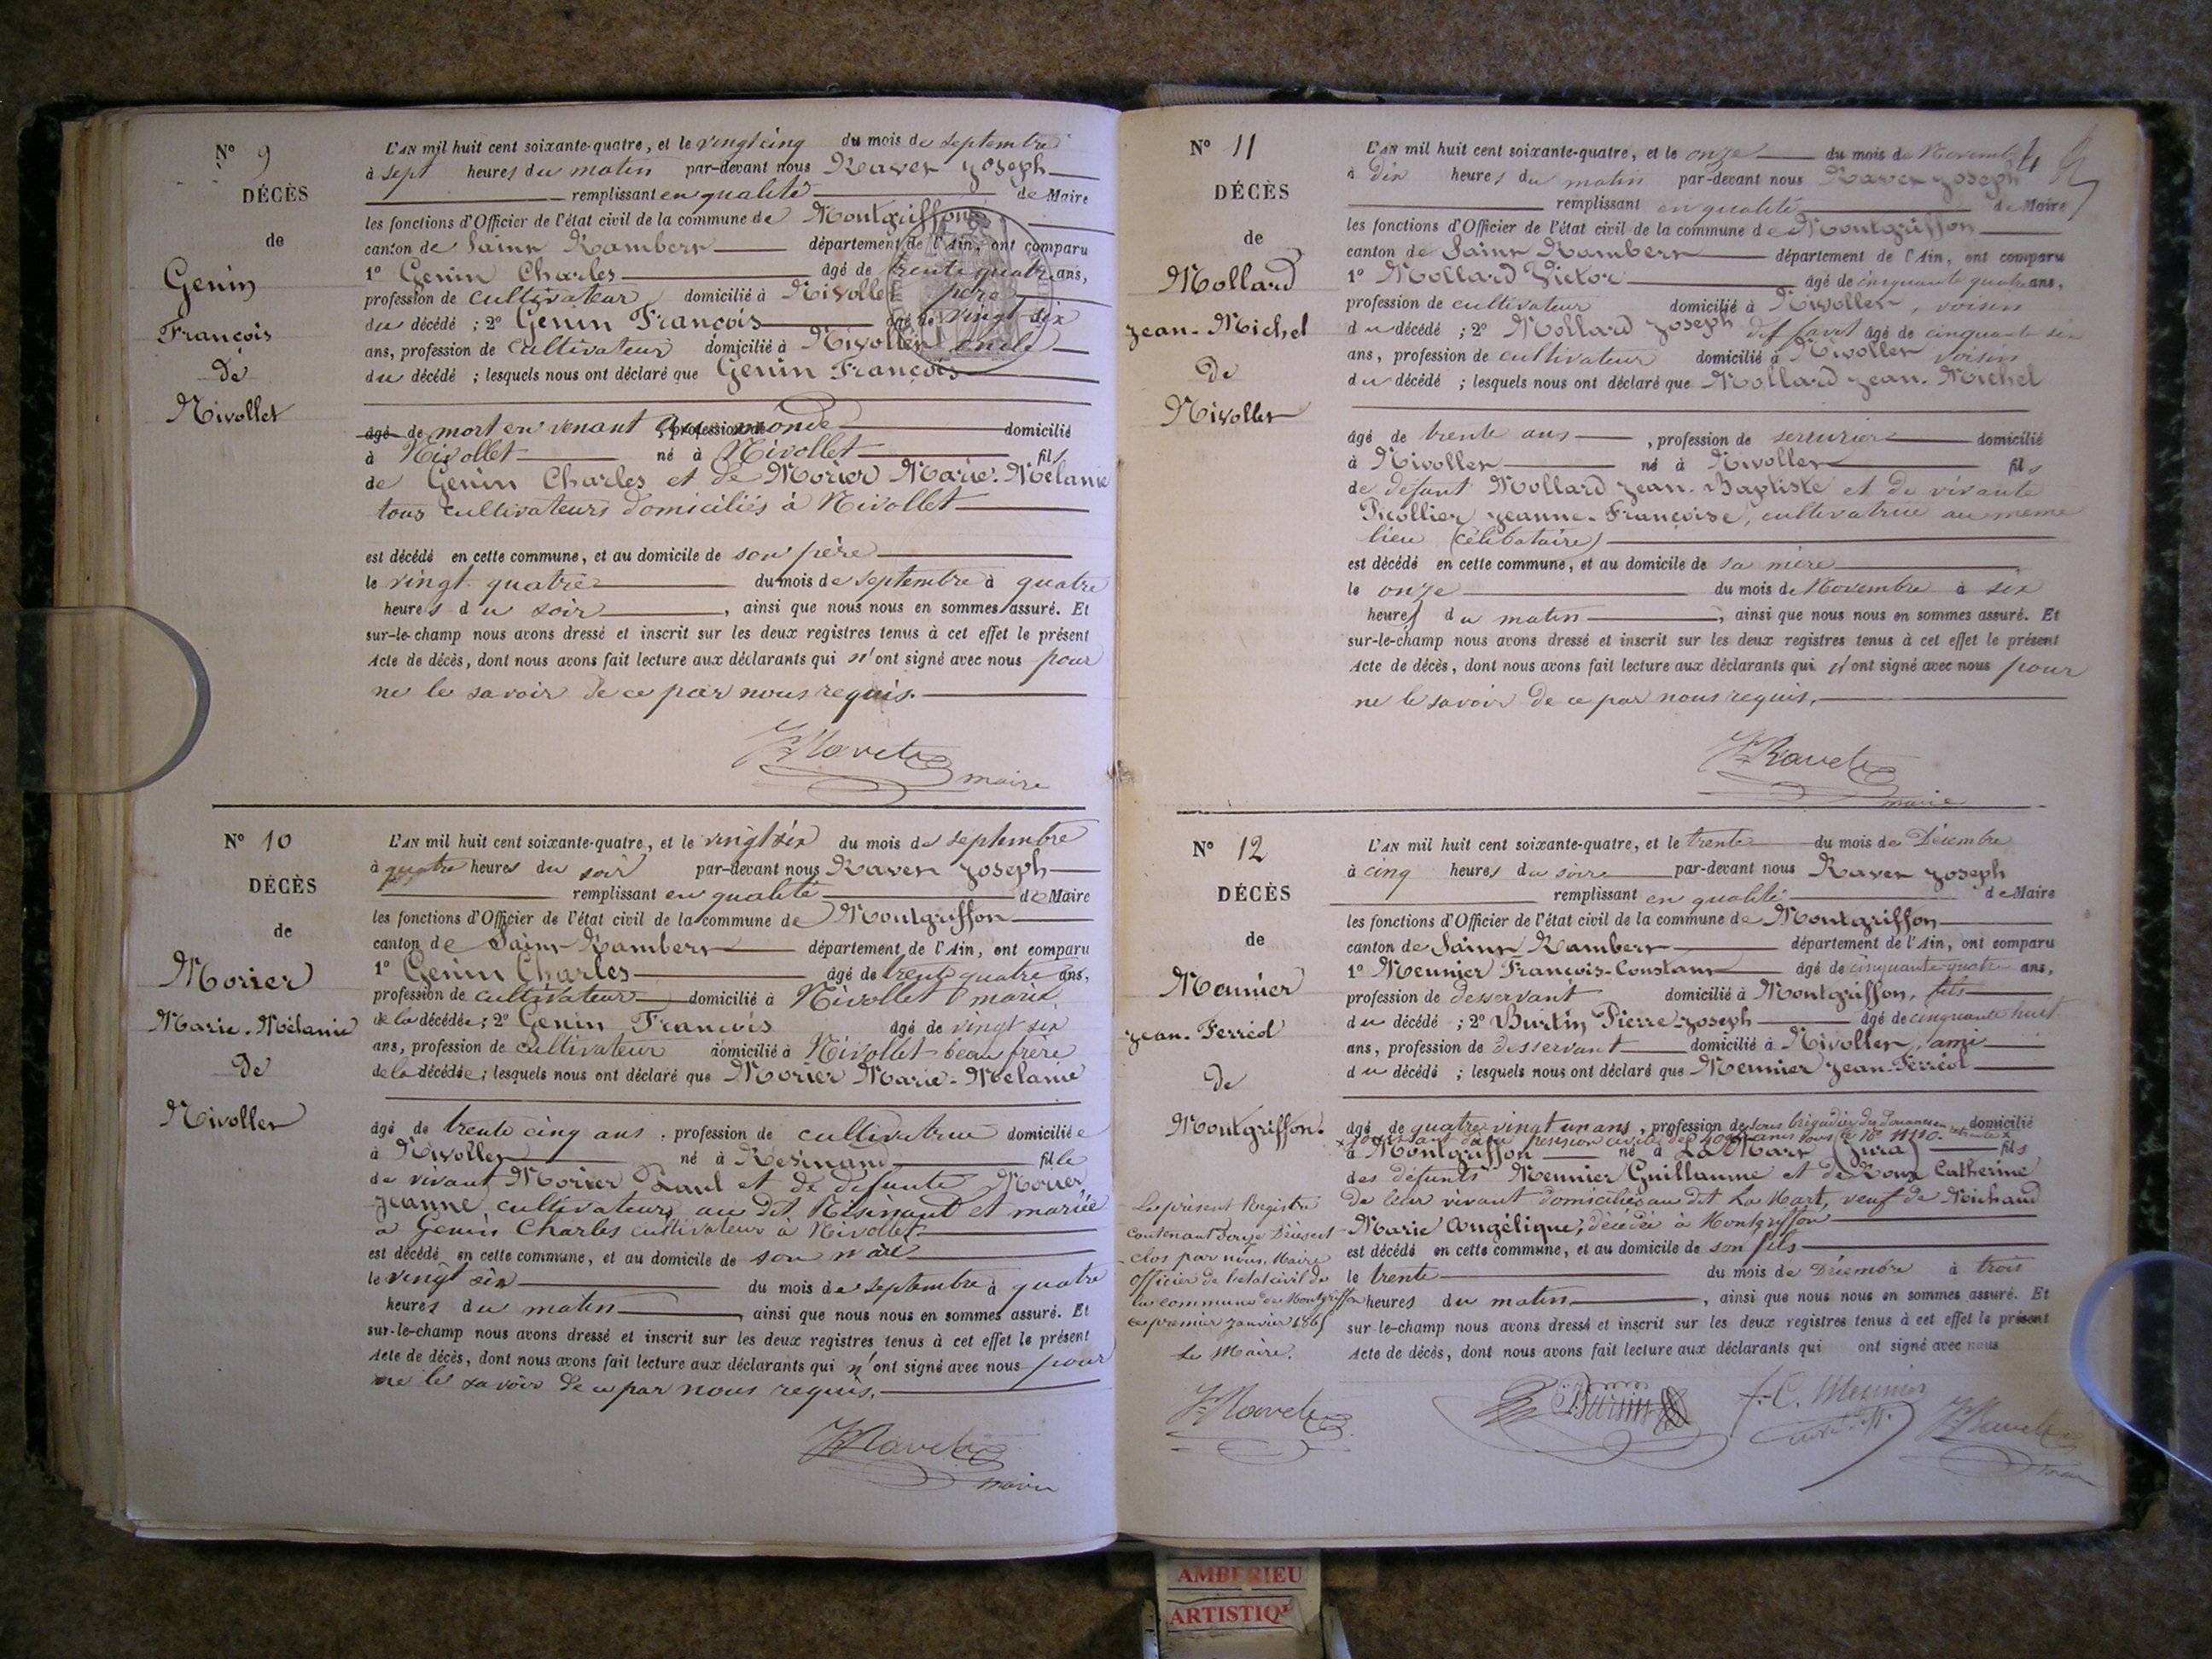 N° 9
DÉCÈS
de
Genin
François
de
Nivollet
L'AN mil huit cent soixante-quatre, et le vingt cinq du mois de septembre
à sept heures du matin par-devant nous Ravet Joseph
remplissant en qualité de Maire
les fonctions d'Officier de l'état civil de la commune de Montgriffon
canton de Saint Rambert département de l'Ain, ont comparu
1° Genin Charles âgé de trente quatre ans,
profession de cultivateur domicilié à Nivollet père
du décédé ; 2° Genin François âgé de vingt six
ans, profession de cultivateur domicilié à Nivollet oncle
du décédé ; lesquels nous ont déclaré que Genin François
âgé de mort en venant au monde , profession de domicilié
à Nivollet né à Nivollet fils
de Genin Charles et de Morier Marie-Mélanie
tous cultivateurs domiciliés à Nivollet
est décédé en cette commune, et au domicile de son père
le vingt quatre du mois de septembre à quatre
heures du soir , ainsi que nous nous en sommes assuré. Et
sur-le-champ nous avons dressé et inscrit sur les deux registres tenus à cet effet le présent
Acte de décès, dont nous avons fait lecture aux déclarants qui n'ont signé avec nous pour
ne le savoir de ce par nous requis.
Jh Ravet
maire
N° 10
DÉCÈS
de
Morier
Marie-Mélanie
de
Nivollet
L'AN mil huit cent soixante-quatre, et le vingt six du mois de septembre
à quatre heures du soir par-devant nous Ravet Joseph
remplissant en qualité de Maire
les fonctions d'Officier de l'état civil de la commune de Montgriffon
canton de Saint Rambert département de l'Ain, ont comparu
1° Genin Charles âgé de trente quatre ans,
profession de cultivateur domicilié à Nivollet mari
de la décédée ; 2° Genin François âgé de vingt six
ans, profession de cultivateur domicilié à Nivollet beau frère
de la décédée ; lesquels nous ont déclaré que Morier Marie-Mélanie
âgé de trente cinq ans , profession de cultivatrice domiciliée
à Nivollet né à Resinand fille
de vivant Morier Paul et de défunte Morier
Jeanne cultivateurs au dit Résinand et mariée
a Genin Charles cultivateur à Nivollet
est décédé en cette commune, et au domicile de son mari
le vingt six du mois de septembre à quatre
heures du matin , ainsi que nous nous en sommes assuré. Et
sur-le-champ nous avons dressé et inscrit sur les deux registres tenus à cet effet le présent
Acte de décès, dont nous avons fait lecture aux déclarants qui n'ont signé avec nous pour
ne le savoir de ce par nous requis.
Jh Ravet
maire
N° 11
DÉCÈS
de
Mollard
Jean-Michel
de
Nivollet
L'AN mil huit cent soixante-quatre, et le onze du mois de Novembre
à dix heures du matin par-devant nous Ravet Joseph
remplissant en qualité de Maire
les fonctions d'Officier de l'état civil de la commune de Montgriffon
canton de Saint Rambert département de l'Ain, ont comparu
1° Mollard Victor âgé de cinquante quatre ans,
profession de cultivateur domicilié à Nivollet, voisin
du décédé ; 2° Mollard Joseph âgé de cinquante six
ans, profession de cultivateur domicilié à Nivollet voisin
du décédé ; lesquels nous ont déclaré que Mollard Jean-Michel
âgé de trente ans , profession de serrurier domicilié
à Nivollet né à Nivollet fils
de défunt Mollard Jean-Baptiste et de vivante
Jeanne-Françoise, cultivatrice au même
lieu (célibataire)
est décédé en cette commune, et au domicile de sa mère
le onze du mois de Novembre à six
heures du matin , ainsi que nous nous en sommes assuré. Et
sur-le-champ nous avons dressé et inscrit sur les deux registres tenus à cet effet le présent
Acte de décès, dont nous avons fait lecture aux déclarants qui n'ont signé avec nous pour
ne le savoir de ce par nous requis.
Jh Ravet
maire
N° 12
DÉCÈS
de
Meunier
Jean-Ferréol
de
Montgriffon
L'AN mil huit cent soixante-quatre, et le trente du mois de Décembre
à cinq heures du soire par-devant nous Ravet Joseph
remplissant en qualité de Maire
les fonctions d'Officier de l'état civil de la commune de Montgriffon
canton de Saint Rambert département de l'Ain, ont comparu
1° Meunier François-Constant âgé de cinquante quatre ans,
profession de desservant domicilié à Montgriffon, fils
du décédé ; 2° Burtin Pierre-Joseph âgé de cinquante huit
ans, profession de desservant domicilié à Nivollet, ami
du décédé ; lesquels nous ont déclaré que Meunier Jean-Ferréol
âgé de quatre vingt un ans , profession de sous brigadier du Douanes en retraite domicilié
x jouissant d'une pension civile de sous le N° 11110. x
à Montgriffon né à La Mart (Jura) fils
des défunts Meunier Guillaume et de Roux Catherine
de leur vivant domiciliés au dit La Mart, veuf de Michaud
Marie Angélique, décédée à Montgriffon
est décédé en cette commune, et au domicile de son fils
le trente du mois de Décembre à trois
heures du matin , ainsi que nous nous en sommes assuré. Et
sur-le-champ nous avons dressé et inscrit sur les deux registres tenus à cet effet le présent
Acte de décès, dont nous avons fait lecture aux déclarants qui ont signé avec nous
Burtin
F.-C. Meunier
Jh Ravet
maire
Le présent Registre
contenant douze Décès est
clos par nous, Maire
officier de l'etat civil de
la commune de Montgriffon
le premier Janvier 1865
Le Maire.
Jh Ravet
AMBERIEU
ARTISTIQ